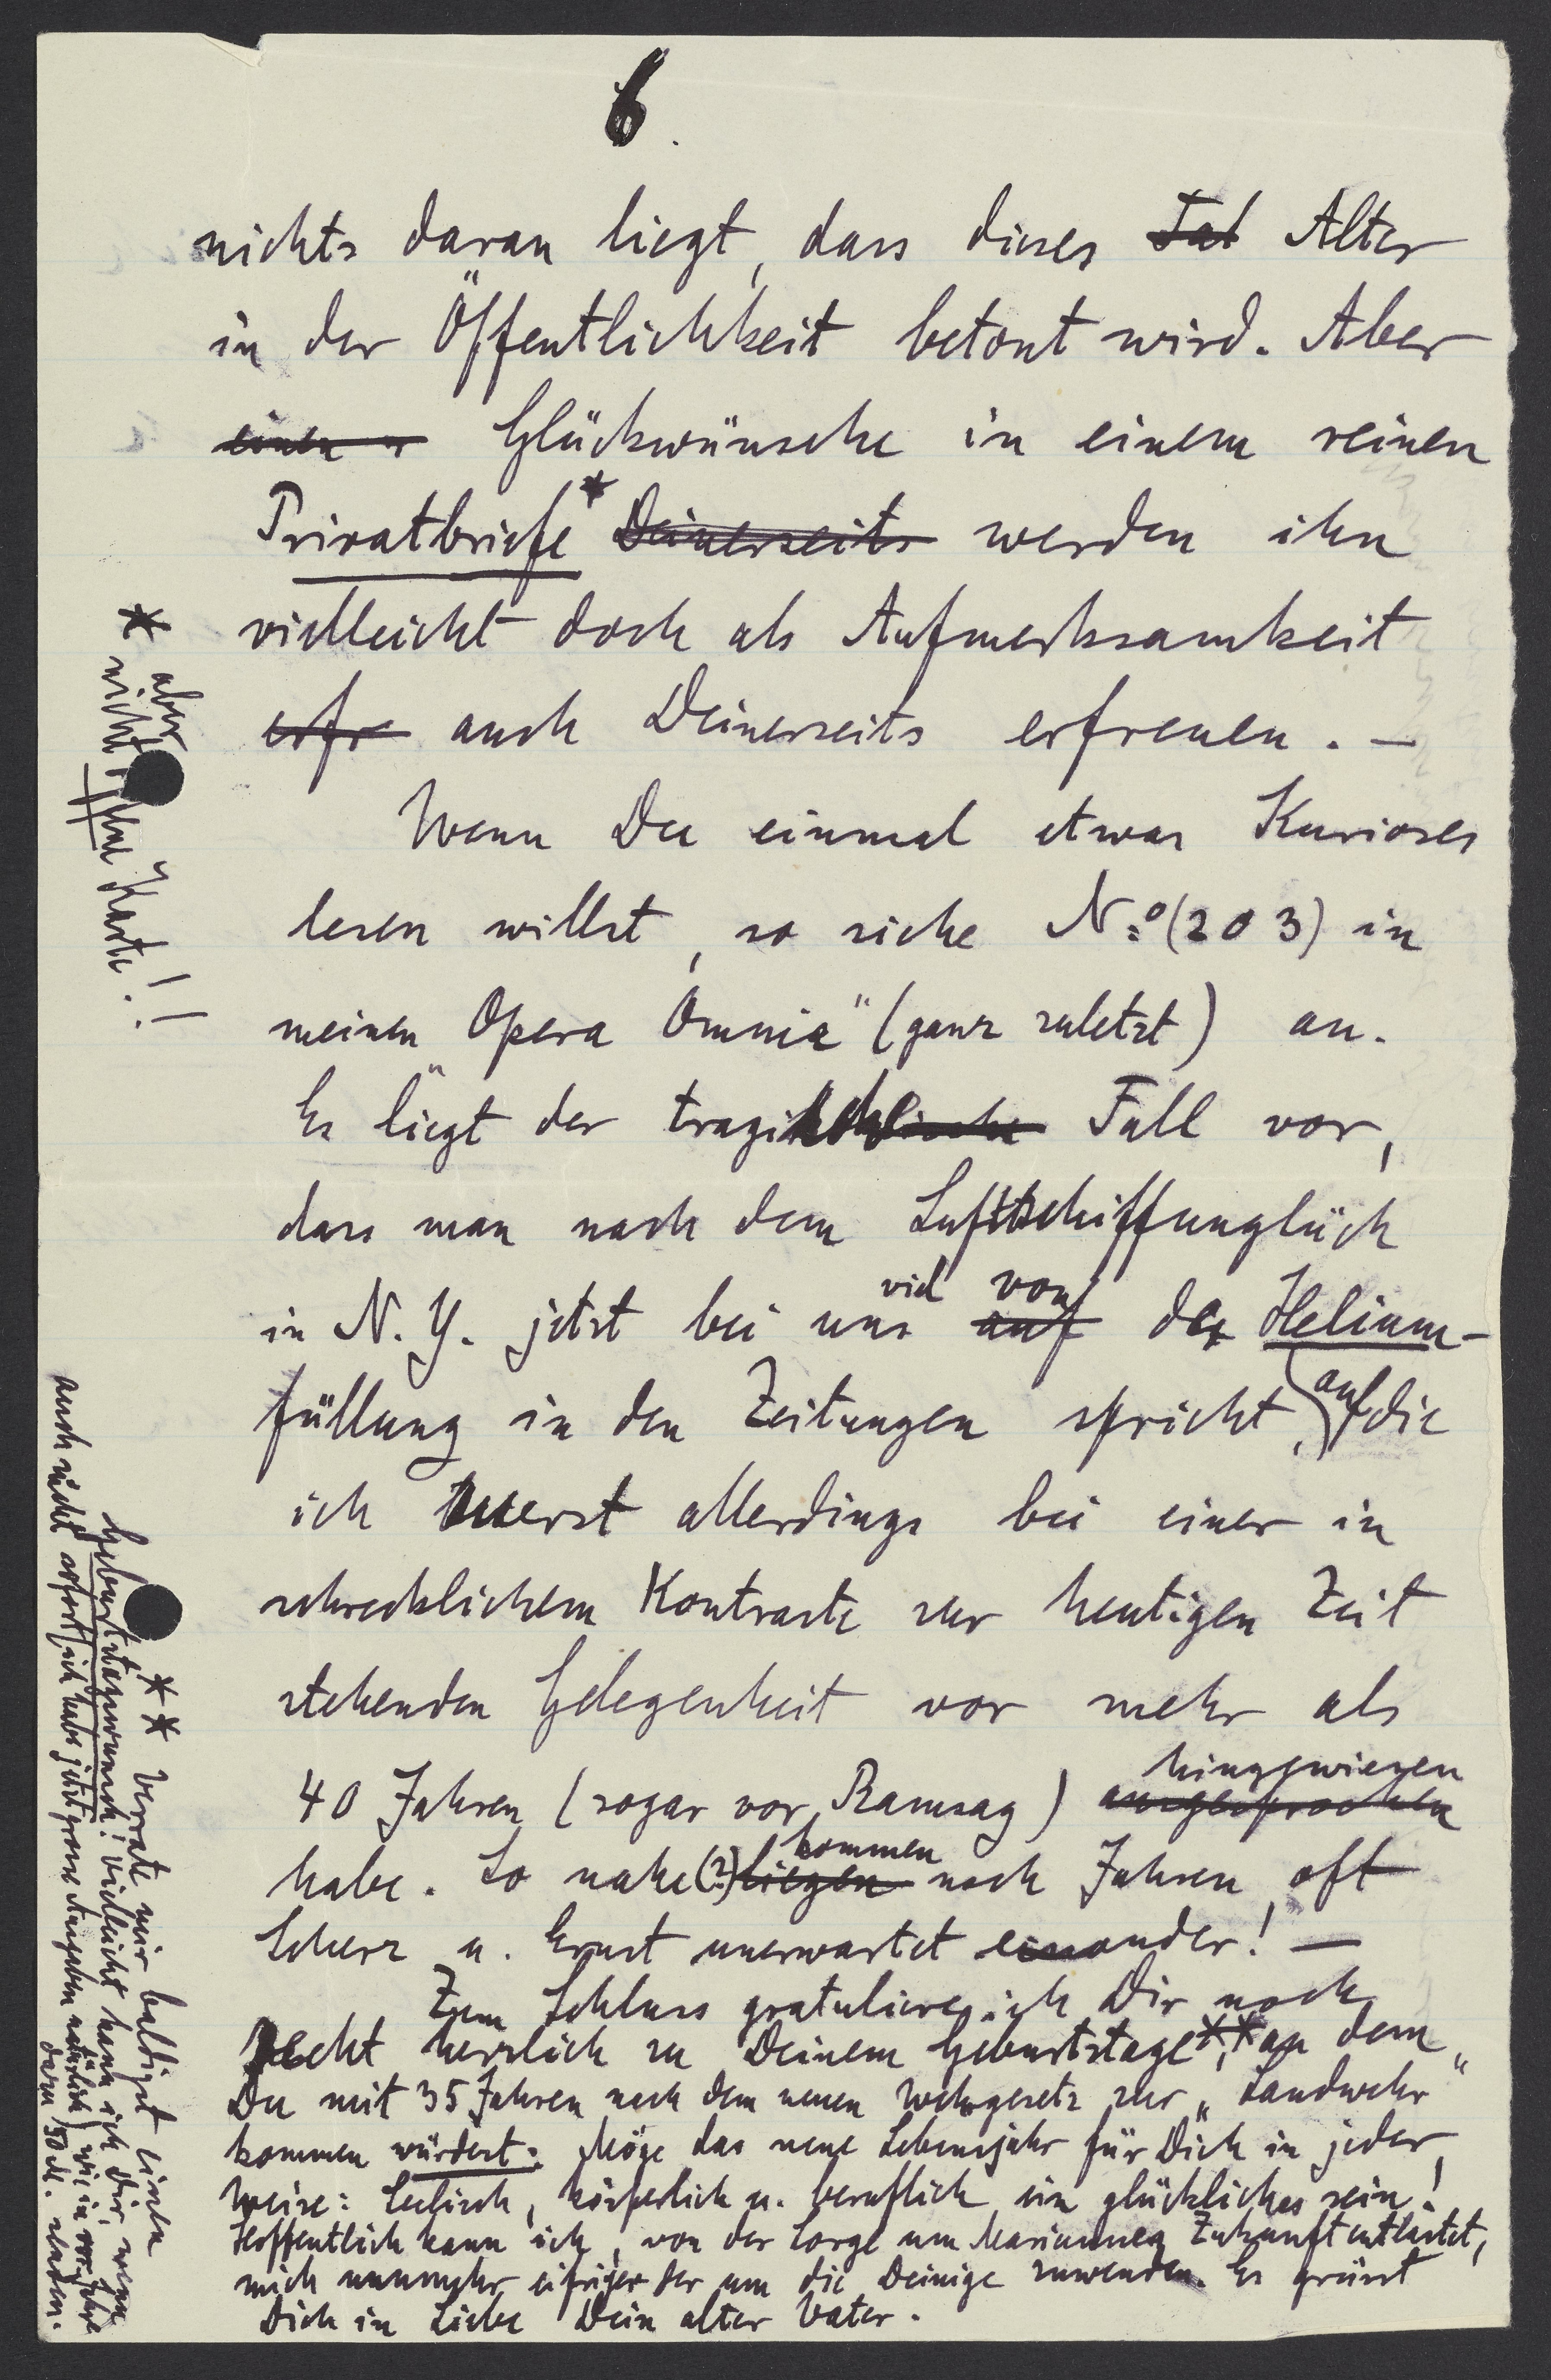 6.
nichts daran liegt, dass dieses Tat Alter
in der Öffentlichkeit betont wird. Aber
einen Glückwünsche in einem reinen
Privatbriefe* Deinerseits werden ihn
vielleicht doch als Aufmerksamkeit
erfr auch Deinerseits erfreuen. —
Wenn Du einmal etwas Kurioses
lesen willst, so siehe No (203) in
meinen „Opera Omnia" (ganz zuletzt) an.
Es liegt der Fall vor,
dass man nach dem Luftschiffunglück
viel von
in N. Y. jetzt bei uns auf der Helium-
füllung in den Zeitungen spricht, auf die
ich zuerst allerdings bei einer in
schrecklichem Kontraste zur heutigen Zeit
stehenden Gelegenheit vor mehr als
hingewiesen
40 Jahren (sogar vor Ramsay) ausgesprochen
kommen
habe. So nahe (?) liegen nach Jahren oft
Scherz u. Ernst unerwartet einander! —
Zum Schluss gratuliere ich Dir noch
recht herzlich zu Deinem Geburtstage**, an dem
Du mit 35 Jahren nach dem neuen Wehrgesetz zur „Landwehr"
kommen würdest. Möge das neue Lebensjahr für Dich in jeder
Weise: Seelisch, körperlich u. beruflich ein glückliches sein!
Hoffentlich kann ich, von der Sorge um Mariannes Zukunft entlastet,
mich nunmehr eifriger der um die Deinige zuwenden. Es grüsst
Dich in Liebe Dein alter Vater.
* aber
nicht Karte!!
** Verrate mir baldigst einen
Geburtstagswunsch! Vielleicht kann ich Dir, wenn
auch nicht sofort (ich habe jetzt grosse Ausgaben nämlich) wie im vor. Jahre
dazu 50 M. senden.